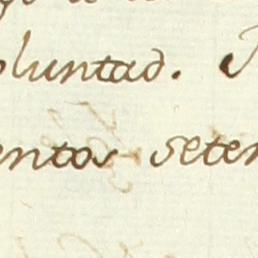 oluntad.
entos seten